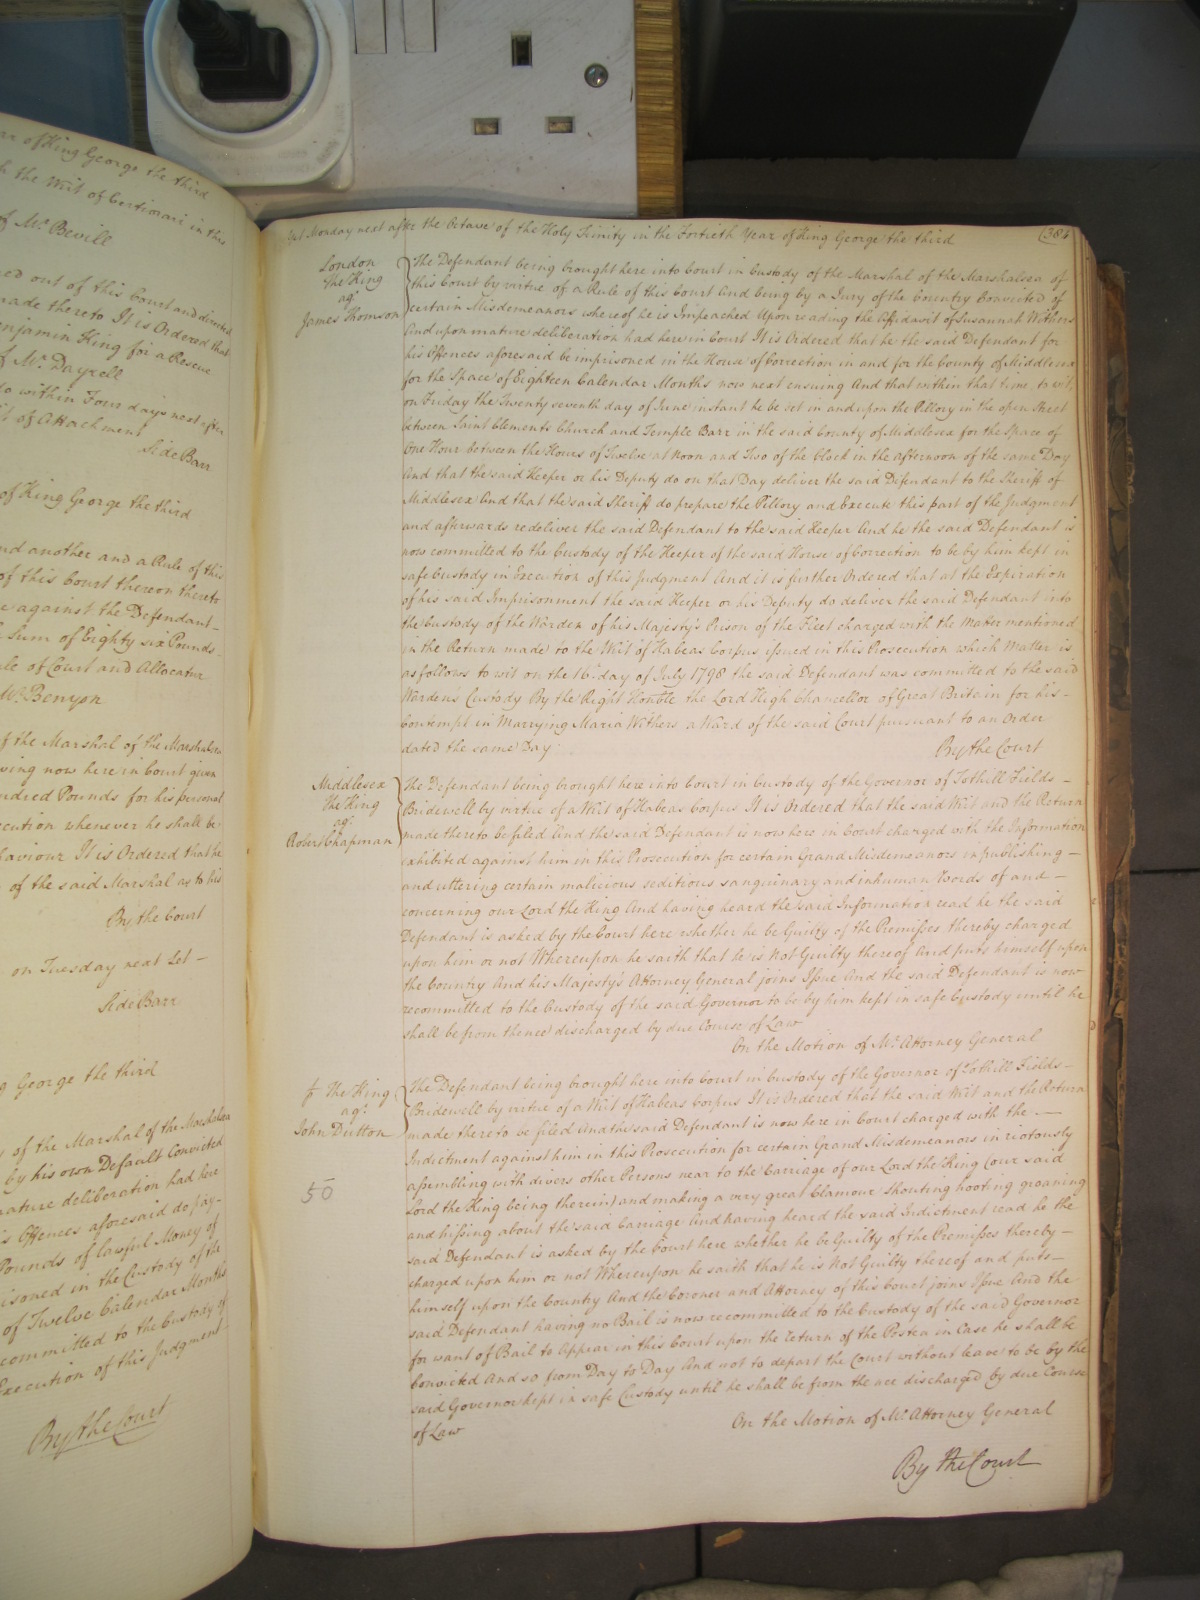 of King George the third
the Writ of Certiorari in this
of Mr. Bevill
out of this Court and directed
made thereto It is Ordered that
Benjamin King for a Rescue
Mr. Dayrell
do within Four days next after
of Attachment
Side Barr
of King George the third
and another and a Rule of this
of this Court thereon thereto
against the Defendant
Sum of Eighty six Pounds
Rule of Court and Allocatur
Mr. Benyon
of the Marshal of the Marshalsea
now here in Court given
hundred Pounds for his personal
whenever he shall be
behaviour It is Ordered that he
of the said Marshal as to his
By the Court
on Tuesday next Let
Side Barr
George the third
of the Marshal of the Marshalsea
by his own Default Convicted
mature deliberation had here
Offences aforesaid do pay
Pounds of lawful Money of
in the Custody of the
of Twelve Calendar Months
committed to the Custody of
Execution of this Judgment
By the Court
Yet Monday next after the Octave of the Holy Trinity in the Fortieth Year of King George the third
London
The King
agt.
James Thomson
The Defendant being brought here into Court in Custody of the Marshal of the Marshalsea of
this Court by virtue of a Rule of this Court And being by a Jury of the Country Convicted of
certain Misdemeanors whereof he is Impeached Upon reading the Affidavit of Susannah Withers
And upon mature deliberation had here in Court It is Ordered that he the said Defendant for
his Offences aforesaid be imprisoned in the House of Correction in and for the County of Middlesex
for the Space of Eighteen Calendar Months now next ensuing And that within that time, to wit,
on Friday the Twenty seventh day of June instant he be set in and upon the Pillory in the open Street
between Saint Clements Church and Temple Barr in the said County of Middlesex for the Space of
One Hour between the Hours of Twelve at Noon and Two of the Clock in the afternoon of the same Day
And that the said Keeper or his Deputy do on that Day deliver the said Defendant to the Sheriff of
Middlesex And that the said Sheriff do prepare the Pillory and Execute this part of the Judgment
and afterwards redeliver the said Defendant to the said Keeper And he the said Defendant is
now committed to the Custody of the Keeper of the said House of Correction to be by him kept in
safe Custody in Execution of this Judgment And it is further Ordered that at the Expiration
of his said Imprisonment the said Keeper or his Deputy do deliver the said Defendant into
the Custody of the Warden of his Majesty's Prison of the Fleet charged with the Matter mentioned
in the Return made to the Writ of Habeas Corpus issued in this Prosecution which Matter is
as follows to wit on the 16. day of July 1798 the said Defendant was committed to the said
Warden's Custody By the Right Honble the Lord High Chancellor of Great Britain for his
Contempt in Marrying Maria Withers a Ward of the said Court pursuant to an Order
dated the same Day
By the Court
Middlesex
The King
agt.
Robert Chapman
The Defendant being brought here into Court in Custody of the Governor of Tothill Fields
Bridewell by virtue of a Writ of Habeas Corpus It is Ordered that the said Writ and the Return
made thereto be filed And the said Defendant is now here in Court charged with the Information
exhibited against him in this Prosecution for certain Grand Misdemeanors in publishing
and uttering certain malicious seditious sanguinary and inhuman Words of and
concerning our Lord the King And having heard the said Information read he the said
Defendant is asked by the Court here whether he be Guilty of the Premisses thereby charged
upon him or not Whereupon he saith that he is Not Guilty thereof And puts himself upon
the Country And his Majesty's Attorney General joins Issue And the said Defendant is now
recommitted to the Custody of the said Governor to be by him kept in safe Custody until he
shall be from thence discharged by due Course of Law
On the Motion of Mr. Attorney General
The King
agt.
John Dutton
50
The Defendant being brought here into Court in Custody of the Governor of Tothill Fields
Bridewell by virtue of a Writ of Habeas Corpus It is Ordered that the said Writ and the Return
made thereto be filed And the said Defendant is now here in Court charged with the
Indictment against him in this Prosecution for certain Grand Misdemeanors in riotously
assembling with divers other Persons near to the Carriage of our Lord the King (our said
Lord the King being therein) and making a very great Clamour Shouting hooting groaning
and hissing about the said Carriage And having heard the said Indictment read he the
said Defendant is asked by the Court here whether he be Guilty of the Premisses thereby
charged upon him or not Whereupon he saith that he is Not Guilty thereof and puts
himself upon the Country And the Coroner and Attorney of this Court joins Issue And the
said Defendant having no Bail is now recommitted to the Custody of the said Governor
for want of Bail to Appear in this Court upon the return of the Postea in Case he shall be
Convicted And so from Day to Day And not to depart the Court without leave to be by the
said Governor kept in safe Custody until he shall be from thence discharged by due Course
of Law
On the Motion of Mr. Attorney General
By the Court